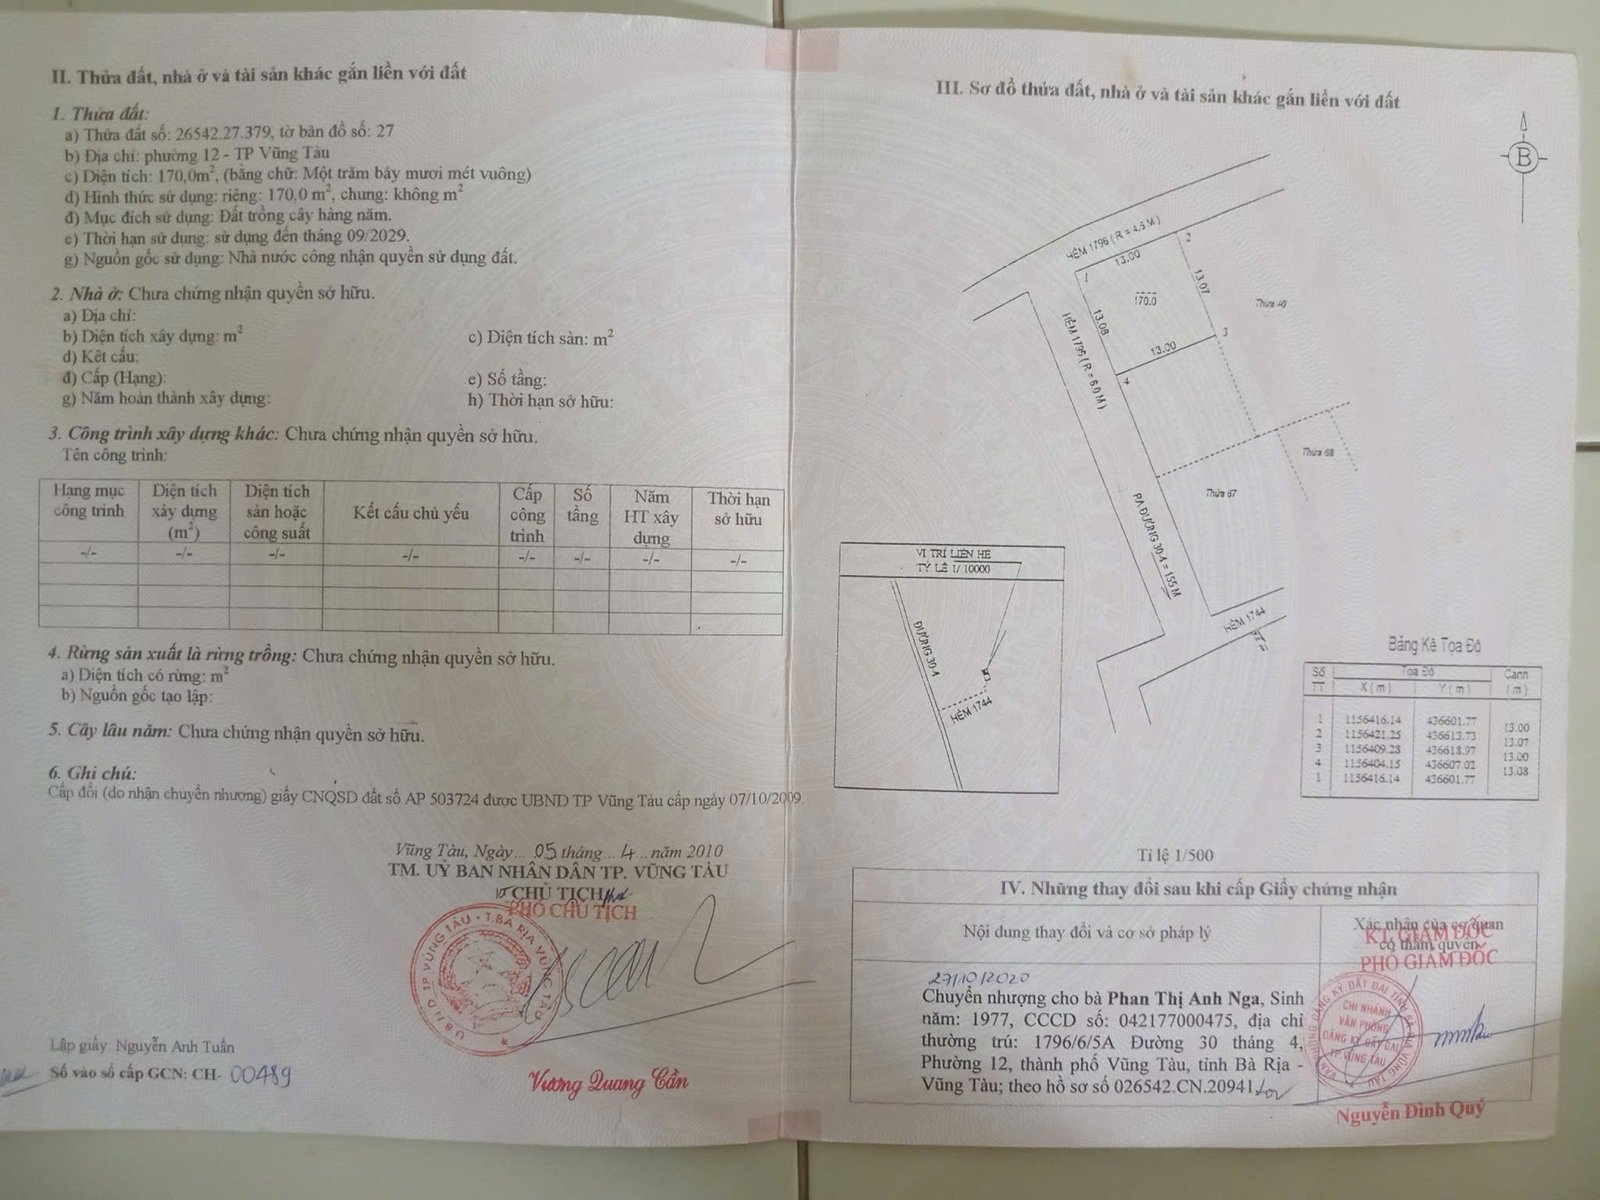 II. Thửa đất, nhà ở và tài sản khác gắn liền với đất
1. Thửa đất:
a) Thửa đất số: 26542.27.379, tờ bản đồ số: 27
b) Địa chỉ: phường 12 - TP Vũng Tàu
c) Diện tích: 170,0m², (bằng chữ: Một trăm bảy mươi mét vuông)
d) Hình thức sử dụng: riêng: 170,0 m², chung: không m²
đ) Mục đích sử dụng: Đất trồng cây hàng năm.
e) Thời hạn sử dụng: sử dụng đến tháng 09/2029.
g) Nguồn gốc sử dụng: Nhà nước công nhận quyền sử dụng đất.
2. Nhà ở: Chưa chứng nhận quyền sở hữu.
a) Địa chỉ:
b) Diện tích xây dựng: m²
c) Diện tích sàn: m²
d) Kết cấu:
đ) Cấp (Hạng):
e) Số tầng:
g) Năm hoàn thành xây dựng:
h) Thời hạn sở hữu:
3. Công trình xây dựng khác: Chưa chứng nhận quyền sở hữu.
Tên công trình:
Hạng mục công trình
Diện tích xây dựng (m²)
Diện tích sàn hoặc công suất
Kết cấu chủ yếu
Cấp công trình
Số tầng
Năm HT xây dựng
Thời hạn sở hữu
-/- -/- -/- -/- -/- -/- -/- -/-
4. Rừng sản xuất là rừng trồng: Chưa chứng nhận quyền sở hữu.
a) Diện tích có rừng: m²
b) Nguồn gốc tạo lập:
5. Cây lâu năm: Chưa chứng nhận quyền sở hữu.
6. Ghi chú:
Cấp đổi (do nhận chuyển nhượng) giấy CNQSD đất số AP 503724 được UBND TP Vũng Tàu cấp ngày 07/10/2009.
Vũng Tàu, Ngày... 05 tháng... 4 ..năm 2010
TM. UỶ BAN NHÂN DÂN TP. VŨNG TÀU
CHỦ TỊCH
PHÓ CHỦ TỊCH
U.B.N.D TP VŨNG TÀU - T.BÀ RỊA VŨNG TÀU
Vương Quang Cần
Lập giấy: Nguyễn Anh Tuấn
Số vào sổ cấp GCN: CH- 00489
III. Sơ đồ thửa đất, nhà ở và tài sản khác gắn liền với đất
B
HẺM 1796 ( R = 4.5 M )
13.00
1
2
13.07
170.0
Thửa 40
13.08
3
13.00
4
HẺM 1795 ( R = 6.0 M )
Thửa 68
Thửa 67
RA ĐƯỜNG 30-4 = 155 M
HẺM 1744
VỊ TRÍ LIÊN HỆ
TỶ LỆ 1/ 10000
ĐƯỜNG 30-4
HẺM 1744
Bảng Kê Tọa Độ
Số TT
Tọa Độ
X ( m )
Y ( m )
Cạnh ( m )
1 1156416.14 436601.77
13.00
2 1156421.25 436613.73
13.07
3 1156409.28 436618.97
13.00
4 1156404.15 436607.02
13.08
1 1156416.14 436601.77
Tỉ lệ 1/500
IV. Những thay đổi sau khi cấp Giấy chứng nhận
Nội dung thay đổi và cơ sở pháp lý
Xác nhận của cơ quan có thẩm quyền
KT. GIÁM ĐỐC
PHÓ GIÁM ĐỐC
27/10/2020
Chuyển nhượng cho bà Phan Thị Anh Nga, Sinh
năm: 1977, CCCD số: 042177000475, địa chỉ
thường trú: 1796/6/5A Đường 30 tháng 4,
Phường 12, thành phố Vũng Tàu, tỉnh Bà Rịa -
Vũng Tàu; theo hồ sơ số 026542.CN.20941
VĂN PHÒNG ĐĂNG KÝ ĐẤT ĐAI TỈNH BÀ RỊA VŨNG TÀU
CHI NHÁNH
VĂN PHÒNG
ĐĂNG KÝ ĐẤT ĐAI
TP VŨNG TÀU
Nguyễn Đình Quý